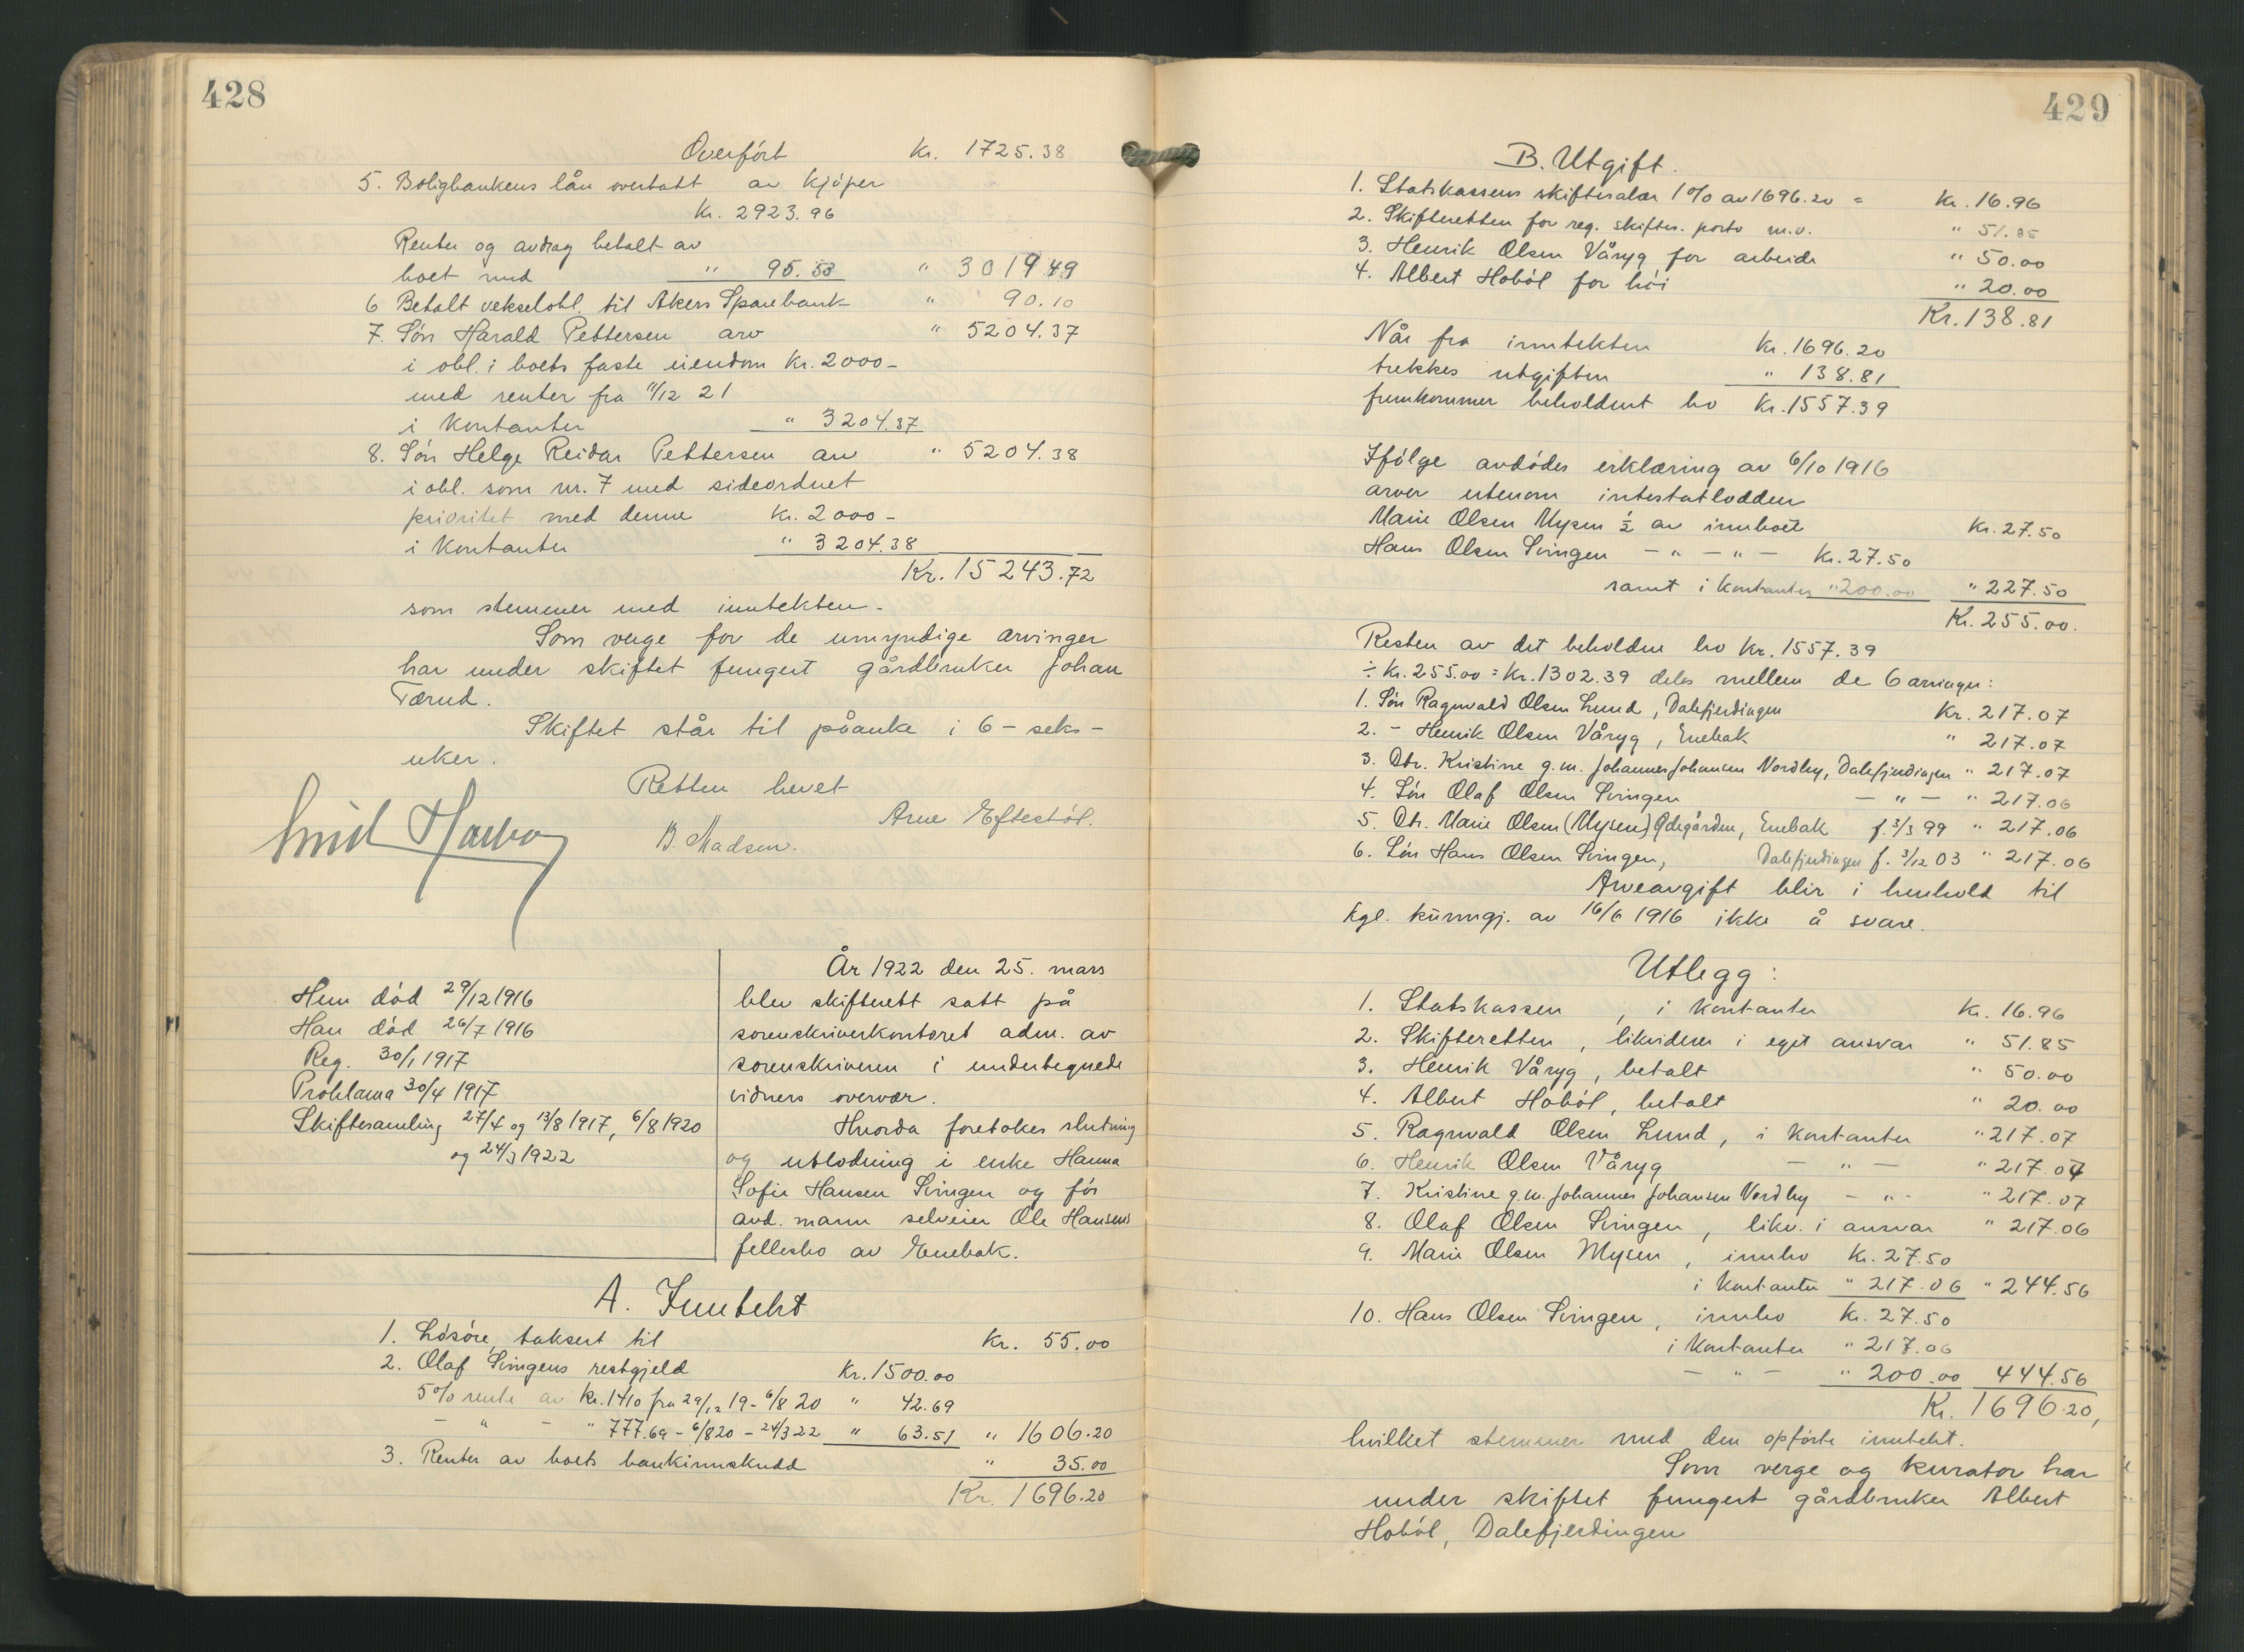 428
Overført Kr. 1725.38
5. Boligbankens lån overtatt av kjøper
Kr. 2923.96
Renter og avdrag betalt av
boet med " 95.53 " 3019.49
6 Betalt vekselobl. til Akers Sparebank " 90.10
7. Søn Harald Pettersen arv " 5204.37
i obl. i boets faste eiendom Kr. 2000-
med renter fra 11/12 21
i kontanter " 3204.37
8. Søn Helge Reidar Pettersen arv " 5204.38
i obl. som nr. 7 med sideordnet
prioritet med denne Kr. 2000-
i kontanter " 3204.38
Kr. 15243.72
som stemmer med inntekten.
Som verge for de umyndige arvinger
har under skiftet fungert gårdbruker Johan
Tærud.
Skiftet står til påanke i 6 - seks -
uker.
Retten hevet
Arne Eftestøl.
B. Madsen.
Hun død 29/12 1916
Han død 26/7 1916
Reg. 30/1 1917
Proklama 30/4 1917
Skiftesamling 27/4 og 13/8 1917, 6/8 1920
og 24/3 1922
År 1922 den 25. mars
blev skifterett satt på
sorenskriverkontoret adm. av
sorenskriveren i undertegnede
vidners overvær.
Hvorda foretokes slutning
og utlodning i enke Hanna
Sofie Hansen Svingen og før
avd. mann selveier Ole Hansens
fellesbo av Enebak.
A. Inntekt
1. Løsøre, taksert til Kr. 55.00
2. Olaf Svingens restgjeld Kr. 1500.00
5% rente av Kr. 1410 fra 29/12 19 - 6/8 20 " 42.69
- " - " 777.69 - 6/8 20 - 24/3 22 " 63.51 " 1606.20
3. Renter av boets bankinnskudd " 35.00
Kr. 1696.20
429
B. Utgift.
1. Statskassens skiftesalær 1% av 1696.20 = Kr. 16.96
2. Skifteretten for reg. skiftes. porto m.v. " 51.85
3. Henrik Olsen Våryg for arbeide " 50.00
4. Albert Hobøl for høi " 20.00
Kr. 138.81
Når fra inntekten Kr. 1696.20
trekkes utgiften " 138.81
fremkommer beholdent bo Kr. 1557.39
Ifølge avdødes erklæring av 6/10 1916
arver utenom intestatlodden
Marie Olsen Mysen ½ av innboet Kr. 27.50
Hans Olsen Svingen - " - " - Kr. 27.50
samt i kontanter " 200.00 " 227.50
Kr. 255.00.
Resten av det beholdne bo Kr. 1557.39
÷ Kr. 255.00 = Kr. 1302.39 deles mellem de 6 arvinger:
1. Søn Ragnvald Olsen Lund, Dalefjerdingen Kr. 217.07
2. - Henrik Olsen Våryg, Enebak " 217.07
3. Dtr. Kristine g.m. Johannes Johansen Nordby, Dalefjerdingen " 217.07
4. Søn Olaf Olsen Svingen - " - " 217.06
5. Dtr. Marie Olsen (Mysen) Ødegården, Enebak f. 3/3 99 " 217.06
6. Søn Hans Olsen Svingen, Dalefjerdingen f. 3/12 03 " 217.06
Arveavgift blir i henhold til
kgl. kunngj. av 16/6 1916 ikke å svare.
Utlegg:
1. Statskassen, i kontanter Kr. 16.96
2. Skifteretten, likviderer i eget ansvar " 51.85
3. Henrik Våryg, betalt " 50.00
4. Albert Hobøl, betalt " 20.00
5. Ragnvald Olsen Lund, i kontanter " 217.07
6. Henrik Olsen Våryg - " - " 217.07
7. Kristine g.m. Johannes Johansen Nordby - " - " 217.07
8. Olaf Olsen Svingen, likv. i ansvar " 217.06
9. Marie Olsen Mysen, innbo Kr. 27.50
i kontanter " 217.06 " 244.56
10. Hans Olsen Svingen, innbo Kr. 27.50
i kontanter " 217.06
- " - " 200.00 444.56
Kr. 1696.20,
hvilket stemmer med den opførte inntekt.
Som verge og kurator har
under skiftet fungert gårdbruker Albert
Hobøl, Dalefjerdingen